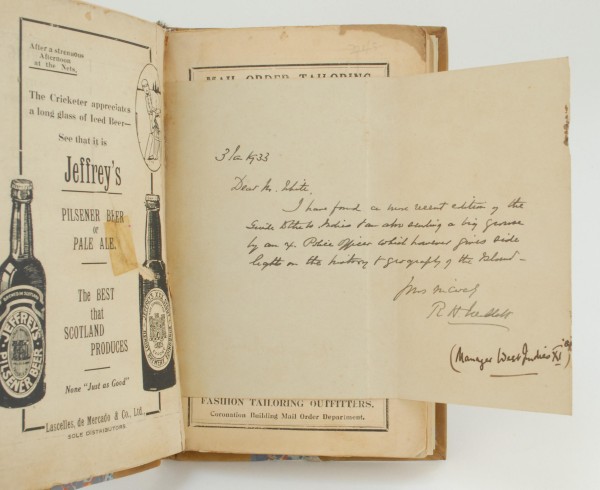 After a strenuous
Afternoon
at the Nets,
The Cricketer appreciates
a long glass of Iced Beer—
See that it is
Jeffrey's
PILSENER BEER
or
PALE ALE.
The BEST
that
SCOTLAND
PRODUCES
None "Just as Good"
Lascelles, de Mercado & Co., Ltd.,
SOLE DISTRIBUTORS.
JEFFREY'S
PILSENER BEER
MAIL ORDER TAILORING
1933
Dear Mr. White,
I have found a more recent edition of the
Guide to the W. Indies & am also sending a big grouse
by an ex. Police Officer which however gives side
lights on the history & geography of the Island—
Yrs sincerely
R H
(Manager West Indies XI)
FASHION TAILORING OUTFITTERS,
Coronation Building Mail Order Department.